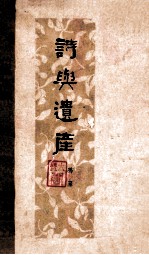 詩與遺產